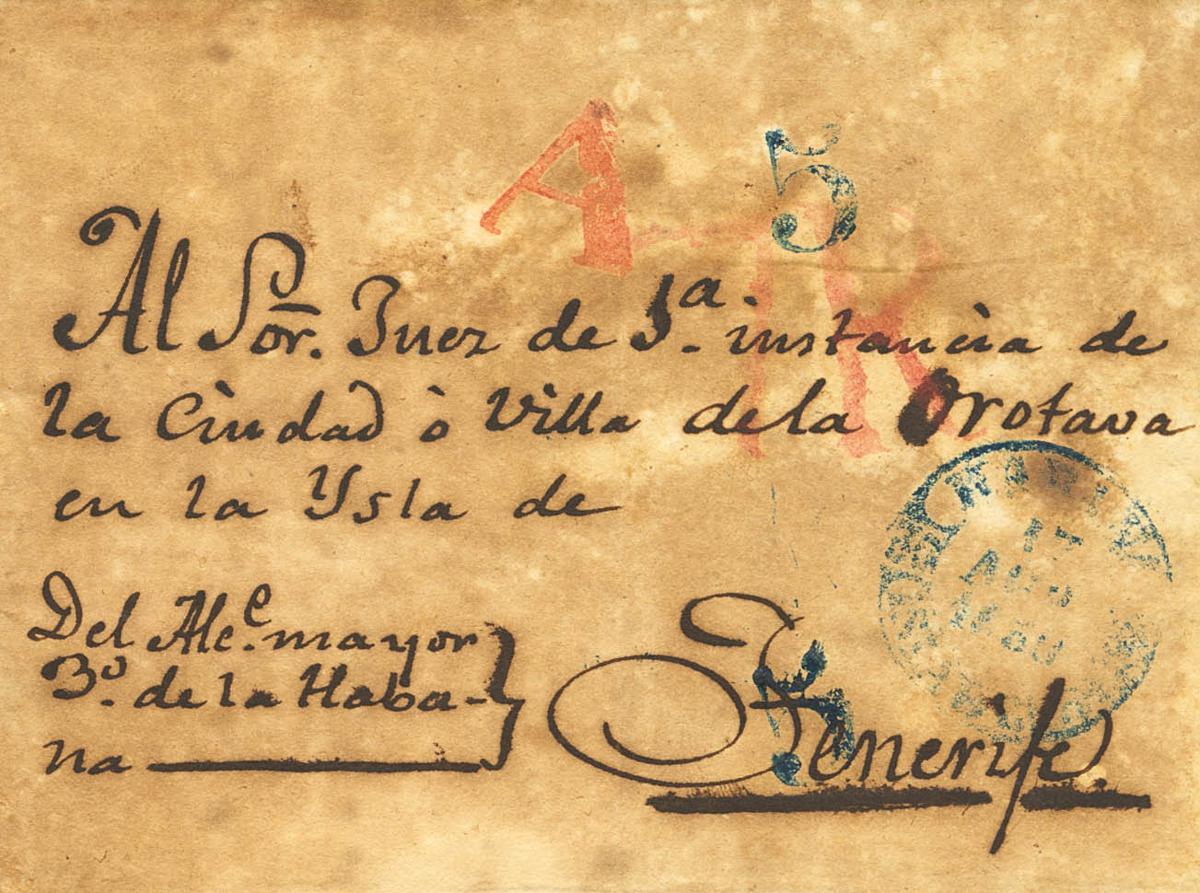 A 5
Al Sor. Juez de 1a. instancia de
la Ciudad ò Villa de la Orotava
en la Ysla de
Del Alce. mayor
3o. de la Haba-
na
Tenerife.
17